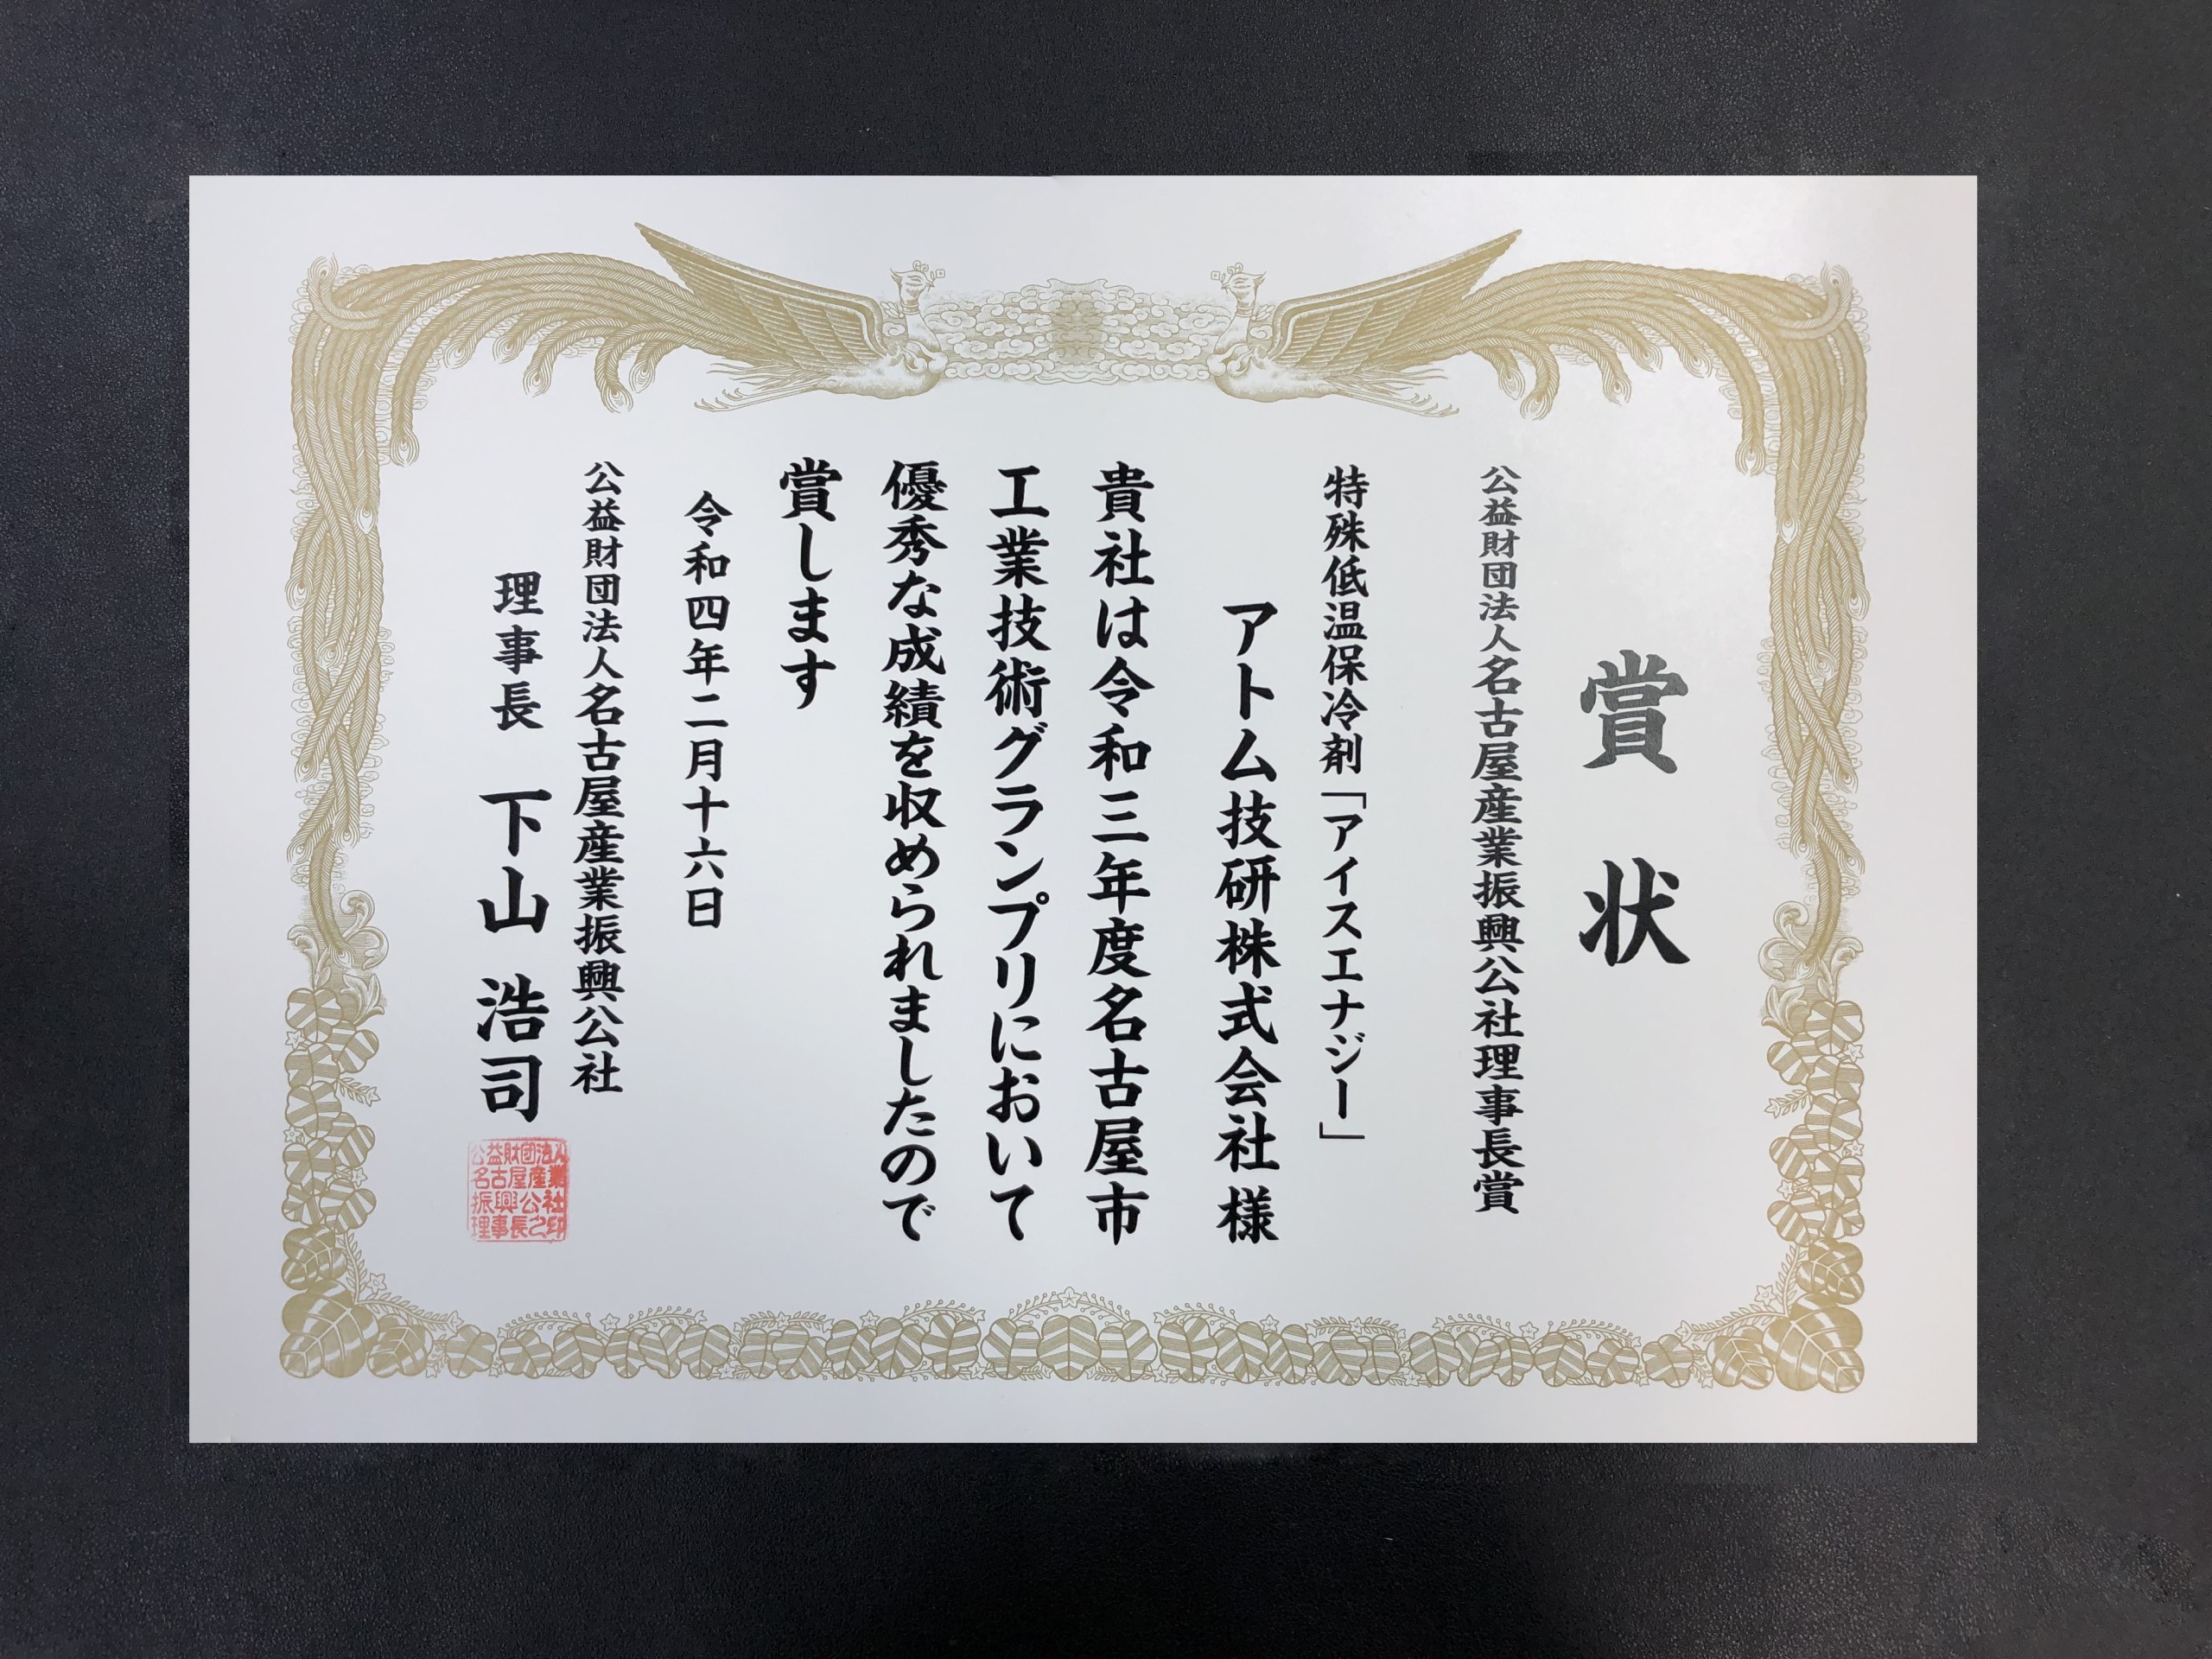 賞状
公益財団法人名古屋産業振興公社理事長賞
特殊低温保冷剤「アイスエナジー」
アトム技研株式会社様
貴社は令和三年度名古屋市
工業技術グランプリにおいて
優秀な成績を収められましたので
賞します
令和四年二月十六日
公益財団法人名古屋産業振興公社
理事長 下山 浩司
公益財団法人
名古屋産業
振興公社
理事長之印